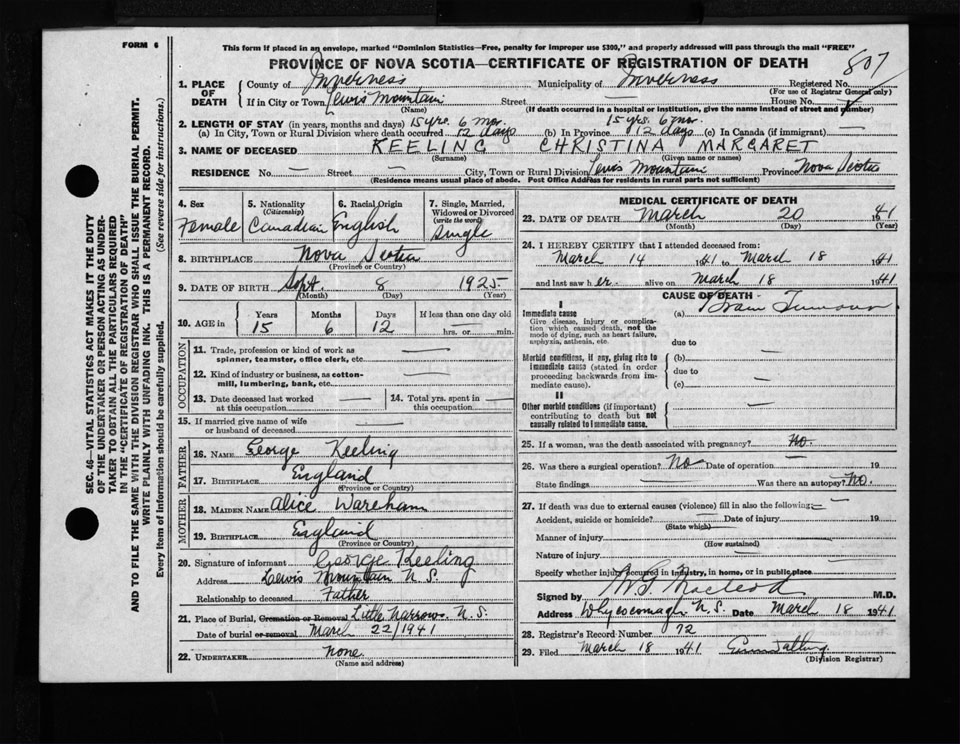 FORM 6
This form if placed in an envelope, marked "Dominion Statistics—Free, penalty for improper use $300," and properly addressed will pass through the mail "FREE"
PROVINCE OF NOVA SCOTIA—CERTIFICATE OF REGISTRATION OF DEATH
807
1. PLACE OF DEATH County of Inverness Municipality of Inverness Registered No.
(For use of Registrar General only)
If in City or Town Lewis Mountain Street — House No.
(Name) (If death occurred in a hospital or institution, give the name instead of street and number)
2. LENGTH OF STAY (in years, months and days) 15 yrs. 6 mos. 15 yrs. 6 mos.
(a) In City, Town or Rural Division where death occurred 12 days (b) In Province 12 days (c) In Canada (if immigrant) —
3. NAME OF DECEASED KEELING CHRISTINA MARGARET
(Surname) (Given name or names)
RESIDENCE No. — Street — City, Town or Rural Division Lewis Mountain Province Nova Scotia
(Residence means usual place of abode. Post Office Address for residents in rural parts not sufficient)
4. Sex Female
5. Nationality (Citizenship) Canadian
6. Racial Origin English
7. Single, Married, Widowed or Divorced (write the word) Single
8. BIRTHPLACE Nova Scotia
(Province or Country)
9. DATE OF BIRTH Sept. 8 1925
(Month) (Day) (Year)
10. AGE in Years Months Days If less than one day old
15 6 12 — hrs. or min.
OCCUPATION
11. Trade, profession or kind of work as spinner, teamster, office clerk, etc. —
12. Kind of industry or business, as cotton-mill, lumbering, bank, etc. —
13. Date deceased last worked at this occupation —
14. Total yrs. spent in this occupation —
15. If married give name of wife or husband of deceased —
FATHER
16. NAME George Keeling
17. BIRTHPLACE England
(Province or Country)
MOTHER
18. MAIDEN NAME Alice Wareham
19. BIRTHPLACE England
(Province or Country)
20. Signature of informant George Keeling
Address Lewis Mountain N.S.
Relationship to deceased Father
21. Place of Burial, Cremation or Removal Little Narrows. N.S.
Date of burial or removal March 22/1941
22. UNDERTAKER none
(Name and address)
MEDICAL CERTIFICATE OF DEATH
23. DATE OF DEATH March 20 1941
(Month) (Day) (Year)
24. I HEREBY CERTIFY that I attended deceased from:
March 14 1941 to March 18 1941
and last saw her alive on March 18 1941
CAUSE OF DEATH
I
Immediate cause
Give disease, injury or complication which caused death, not the mode of dying, such as heart failure, asphyxia, asthenia, etc.
(a) Brain Tumour
due to
Morbid conditions, if any, giving rise to immediate cause (stated in order proceeding backwards from immediate cause).
(b) —
due to
(c) —
II
Other morbid conditions (if important) contributing to death but not causally related to immediate cause.
—
25. If a woman, was the death associated with pregnancy? No.
26. Was there a surgical operation? No Date of operation — 19
State findings — Was there an autopsy? No.
27. If death was due to external causes (violence) fill in also the following: —
Accident, suicide or homicide? — Date of injury — 19
(State which)
Manner of injury —
(How sustained)
Nature of injury —
Specify whether injury occurred in industry, in home, or in public place
Signed by W. G. Macleod M.D.
Address Whycocomagh N.S. Date March 18 1941
28. Registrar's Record Number 72
29. Filed March 18 1941
(Division Registrar)
SEC. 46—VITAL STATISTICS ACT MAKES IT THE DUTY
OF THE UNDERTAKER OR PERSON ACTING AS UNDER-
TAKER TO OBTAIN ALL THE PARTICULARS REQUIRED
IN THE "CERTIFICATE OF REGISTRATION OF DEATH"
AND TO FILE THE SAME WITH THE DIVISION REGISTRAR WHO SHALL ISSUE THE BURIAL PERMIT.
WRITE PLAINLY WITH UNFADING INK. THIS IS A PERMANENT RECORD.
Every item of Information should be carefully supplied. (See reverse side for instructions.)